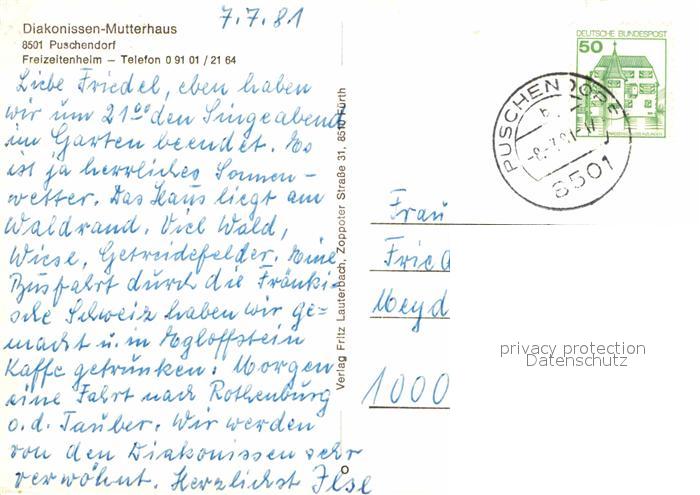 7.7.81
Diakonissen-Mutterhaus
8501 Puschendorf
Freizeitenheim – Telefon 0 91 01 / 21 64
Liebe Friedel, eben haben
wir um 21⁰⁰ den Singeabend
im Garten beendet. Es
ist ja herrliches Sonnen-
wetter. Das Haus liegt am
Waldrand. Viel Wald,
Wiese, Getreidefelder. Eine
Busfahrt durch die Fränki-
sche Schweiz haben wir ge=
macht u. in Egloffstein
Kaffe getrunken. Morgen
eine Fahrt nach Rothenburg
o.d. Tauber. Wir werden
von den Diakonissen sehr
verwöhnt. Herzlichst Ilse
Verlag Fritz Lauterbach, Zoppoter Straße 31, 8510 Fürth
DEUTSCHE BUNDESPOST
50
PUSCHENDORF
-8.-7.81-17
8501
Frau
Fried
Meyd
1000
privacy protection
Datenschutz